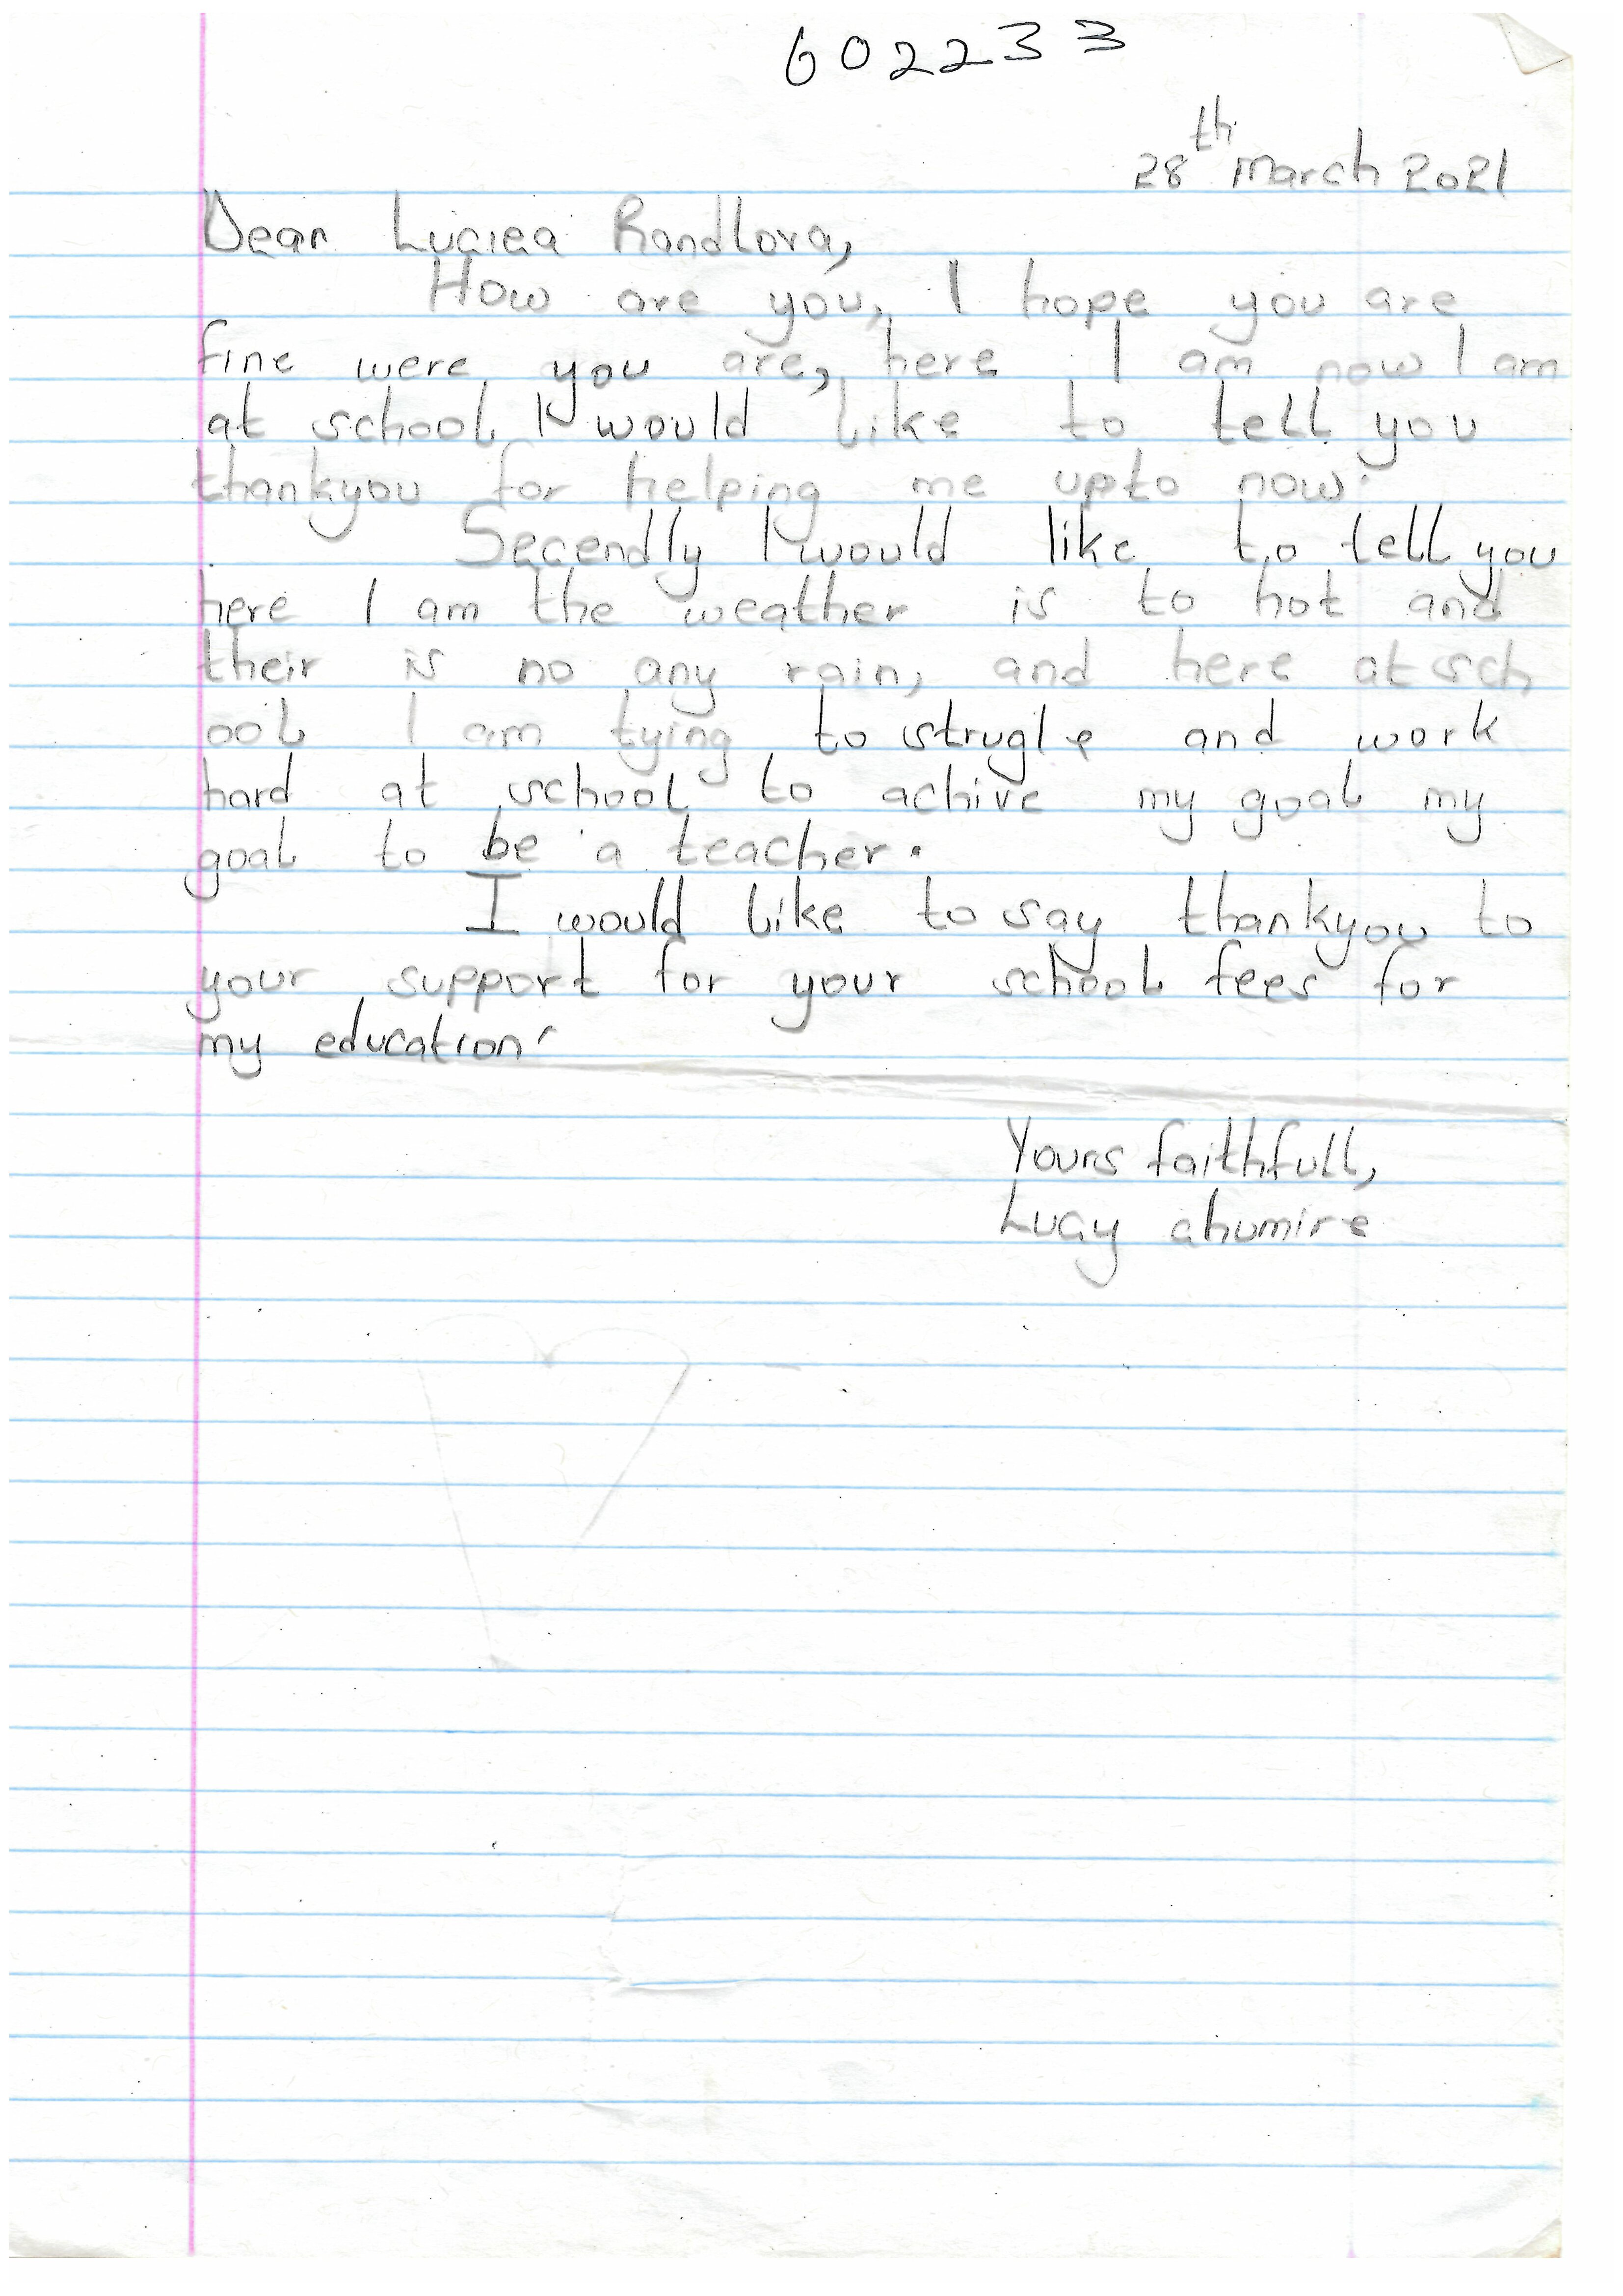 602233
28th March 2021
Dear Luciea Randlova,
How are you, I hope you are
fine were you are, here I am now I am
at school I would like to tell you
thankyou for helping me upto now.
Secendly I would like to tell you
here I am the weather is to hot and
their is no any rain, and here at sch
ool I am tying to strugle and work
hard at school to achive my goal my
goal to be a teacher.
I would like to say thankyou to
your support for your school fees for
my education.
Yours faithfull,
Lucy ahumire